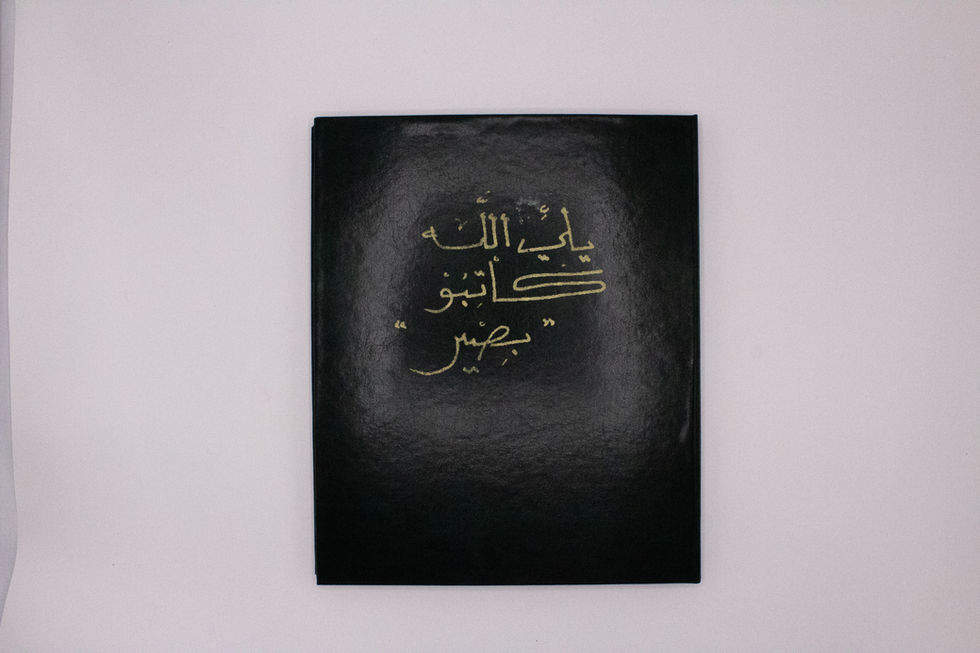 يلئِ اللّه
كأتبُوْ
"بصِْير"